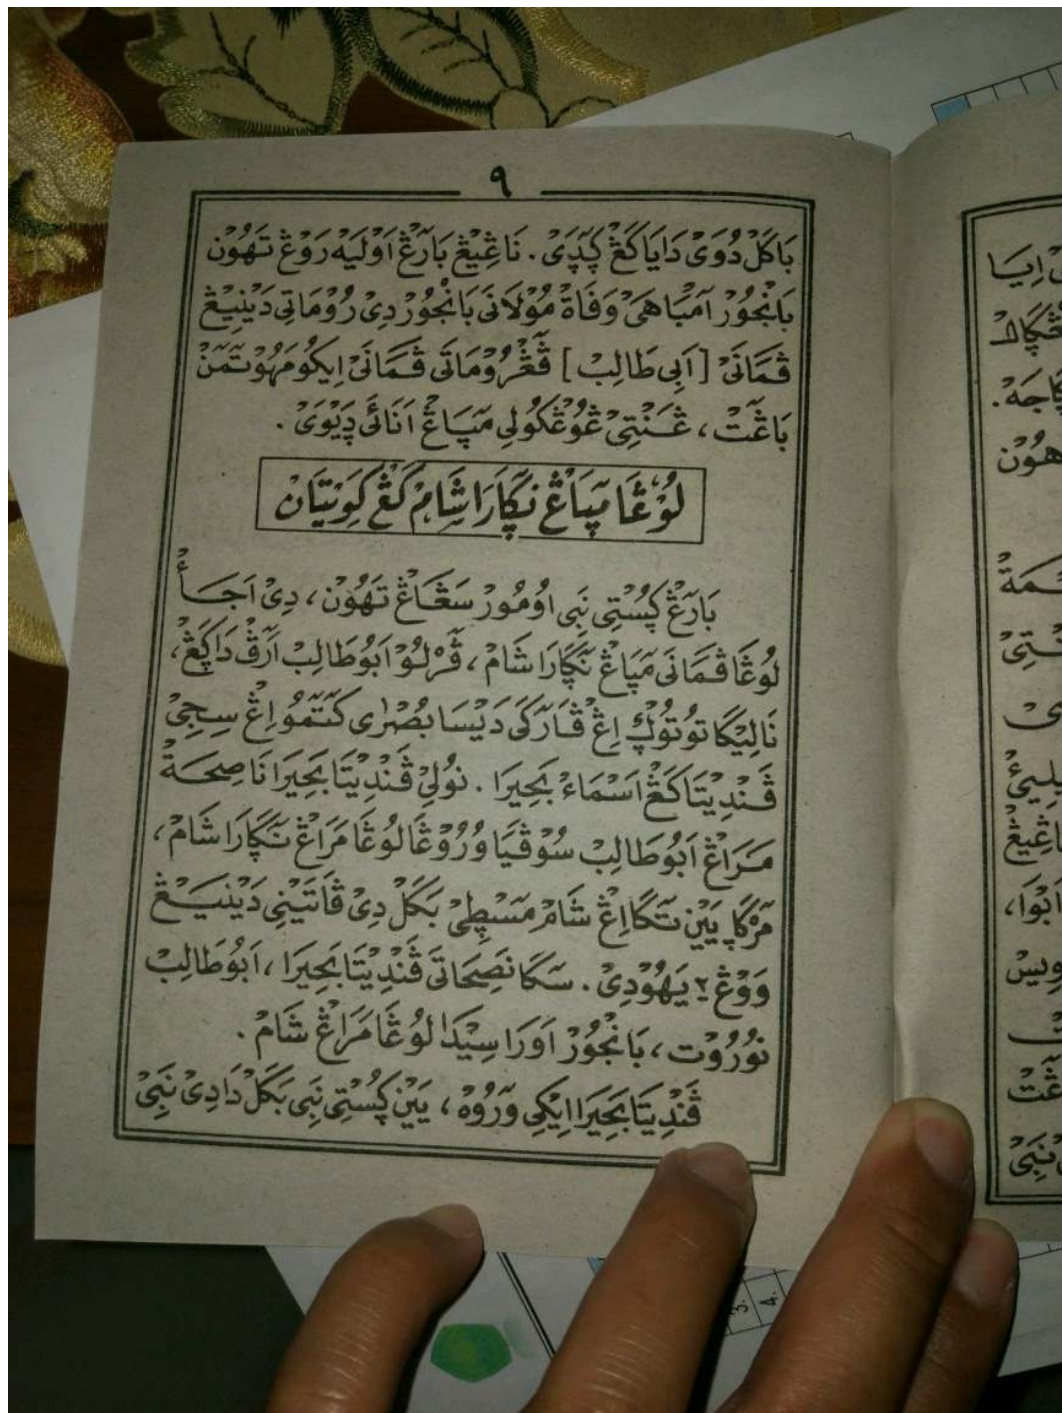 ٩
بَاكَلْ دُوَيْ دَايَا كَڠْ ڮٓڎَيْ. نَاڠِيْڠْ بَارٓڠْ اَوْلَيْهْ رَوْڠْ تَهُوْن
بَانْجُوْرْ آمْبَاهَيْ وَفَاةْ مُوْلَانَيْ بَانْجُوْرْ دِيْ رُوْمَاتِيْ دَيْنِيْڠْ
ڤَمَانَيْ [اَبِى طَالِبْ] ڤَڠْرُوْمَاتَيْ ڤَمَانَيْ اِيْكُوْ مَهُوْتٓمَنْ
بَاڠٓتْ، ڠَنْتِيْ ڠُوْڠْكُوْلِيْ مٓڽَاڠْ اَنَائَيْ ڎَيْوَيْ.
لُوْڠَا مٓڽَاڠْ نٓڮَارَا شَامْ كَڠْ كَڕِيْتَانْ
بَارٓڠْ ڮُسْتِيْ نَبِيْ اُوْمُوْرْ سَڠَاڠْ تَهُوْن، دِيْ اَجَأْ
لُوْڠَا ڤَمَانَيْ مٓڽَاڠْ نٓڮَارَا شَامْ، ڤٓرْلُوْ اَبُوْ طَالِبْ اَرٓڤْ دَاڮَڠْ،
نَالِيْكَا تُوْتُوْڮْ اِڠْ ڤَارٓكَيْ دَيْسَا بُصْرٰى كٓتٓمُوْ اِڠْ سِجِيْ
ڤَنْدِيْتَا كَڠْ اَسْمَاءْ بَحِيرَا. نُوْلِيْ ڤَنْدِيْتَا بَحِيرَا نَاصِحَةْ
مَرَاڠْ اَبُوْ طَالِبْ سُوْڤَيَا وُرُوْڠَا لُوْڠَا مَرَاڠْ نٓڮَارَا شَامْ،
مٓرْڮَا يَيْنْ تٓكَا اِڠْ شَامْ مَسْطِيْ بَكَلْ دِيْ ڤَاتَيْنِيْ دَيْنِيْڠْ
وَوْڠْ ٢ يَهُوْدِيْ. سَكَا نَصِحَاتَيْ ڤَنْدِيْتَا بَحِيرَا، اَبُوْ طَالِبْ
نُوْرُوْت، بَانْجُوْرْ اَوْرَا سِيْدَا لُوْڠَا مَرَاڠْ شَامْ.
ڤَنْدِيْتَا بَحِيرَا اِيْكِيْ وٓرُوْهْ، يَيْنْ ڮُسْتِيْ نَبِيْ بَكَلْ دَادِيْ نَبِيْ